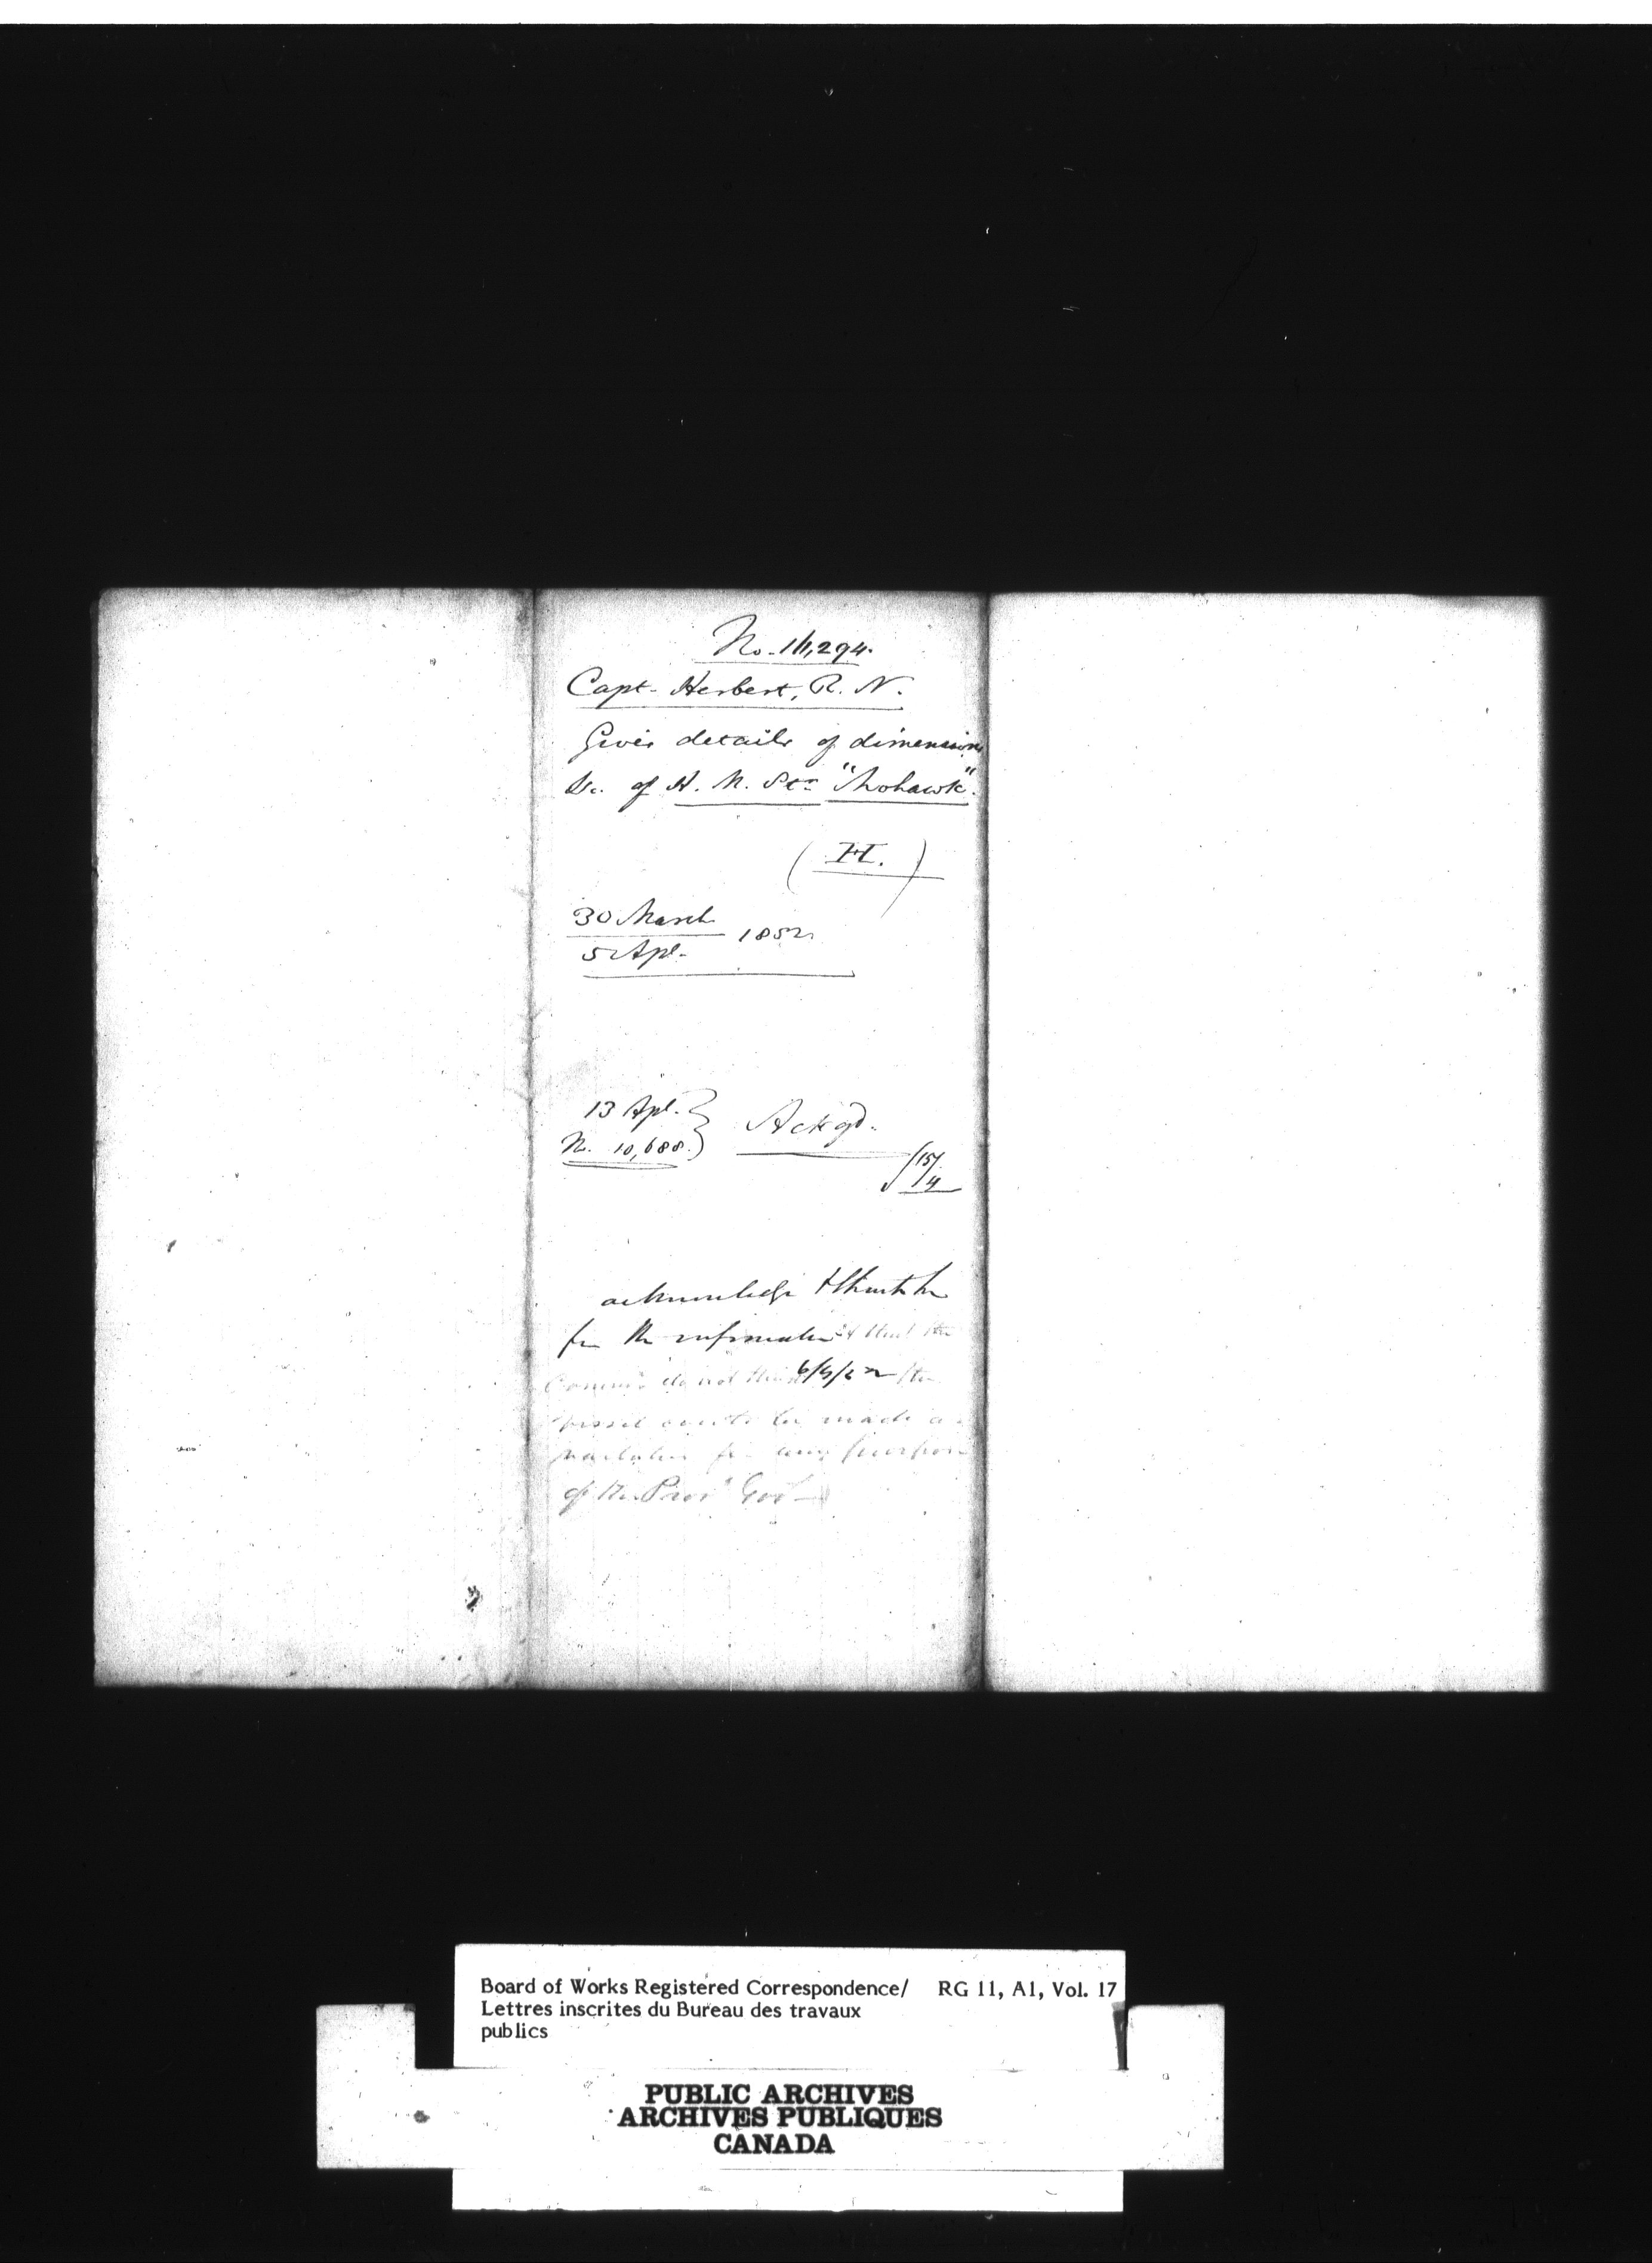 No. 11,294.
Capt. Herbert, R. N.
Gives details of dimensions
&c. of H. M. Str "Mohawk".
(H.)
30 March
5 Apl. 1852
13 Apl.
No. 10,688. Ackgd.
15/4
acknowledge & thank him
for the information & that the
Commrs do not think 6/4/52 the
vessel could be made a-
vailable for any purpose
of the Provl Govt
Board of Works Registered Correspondence/ RG 11, A1, Vol. 17
Lettres inscrites du Bureau des travaux
publics
PUBLIC ARCHIVES
ARCHIVES PUBLIQUES
CANADA